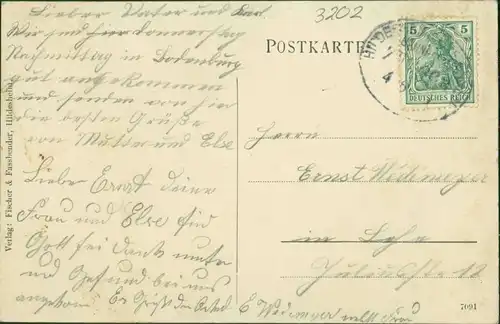 Lieber Vater und Karl
Wir sind hier Donnerstag
Nachmittag in Bodenburg
gut angekommen
und senden von hier
die besten Grüße
von Mutter und Else
Lieber Ernst deine
Frau und Else sind
Gott sei Dank munter
und Gesund bei uns
angekom. Es Grüßt
E Wedemeyer nebst Frau
3202
POSTKARTE
HILDES
5 5
DEUTSCHES REICH
Herrn
Ernst Wedemeyer
in Lehe
7091
Verlag: Fischer & Fassbender, Hildesheim